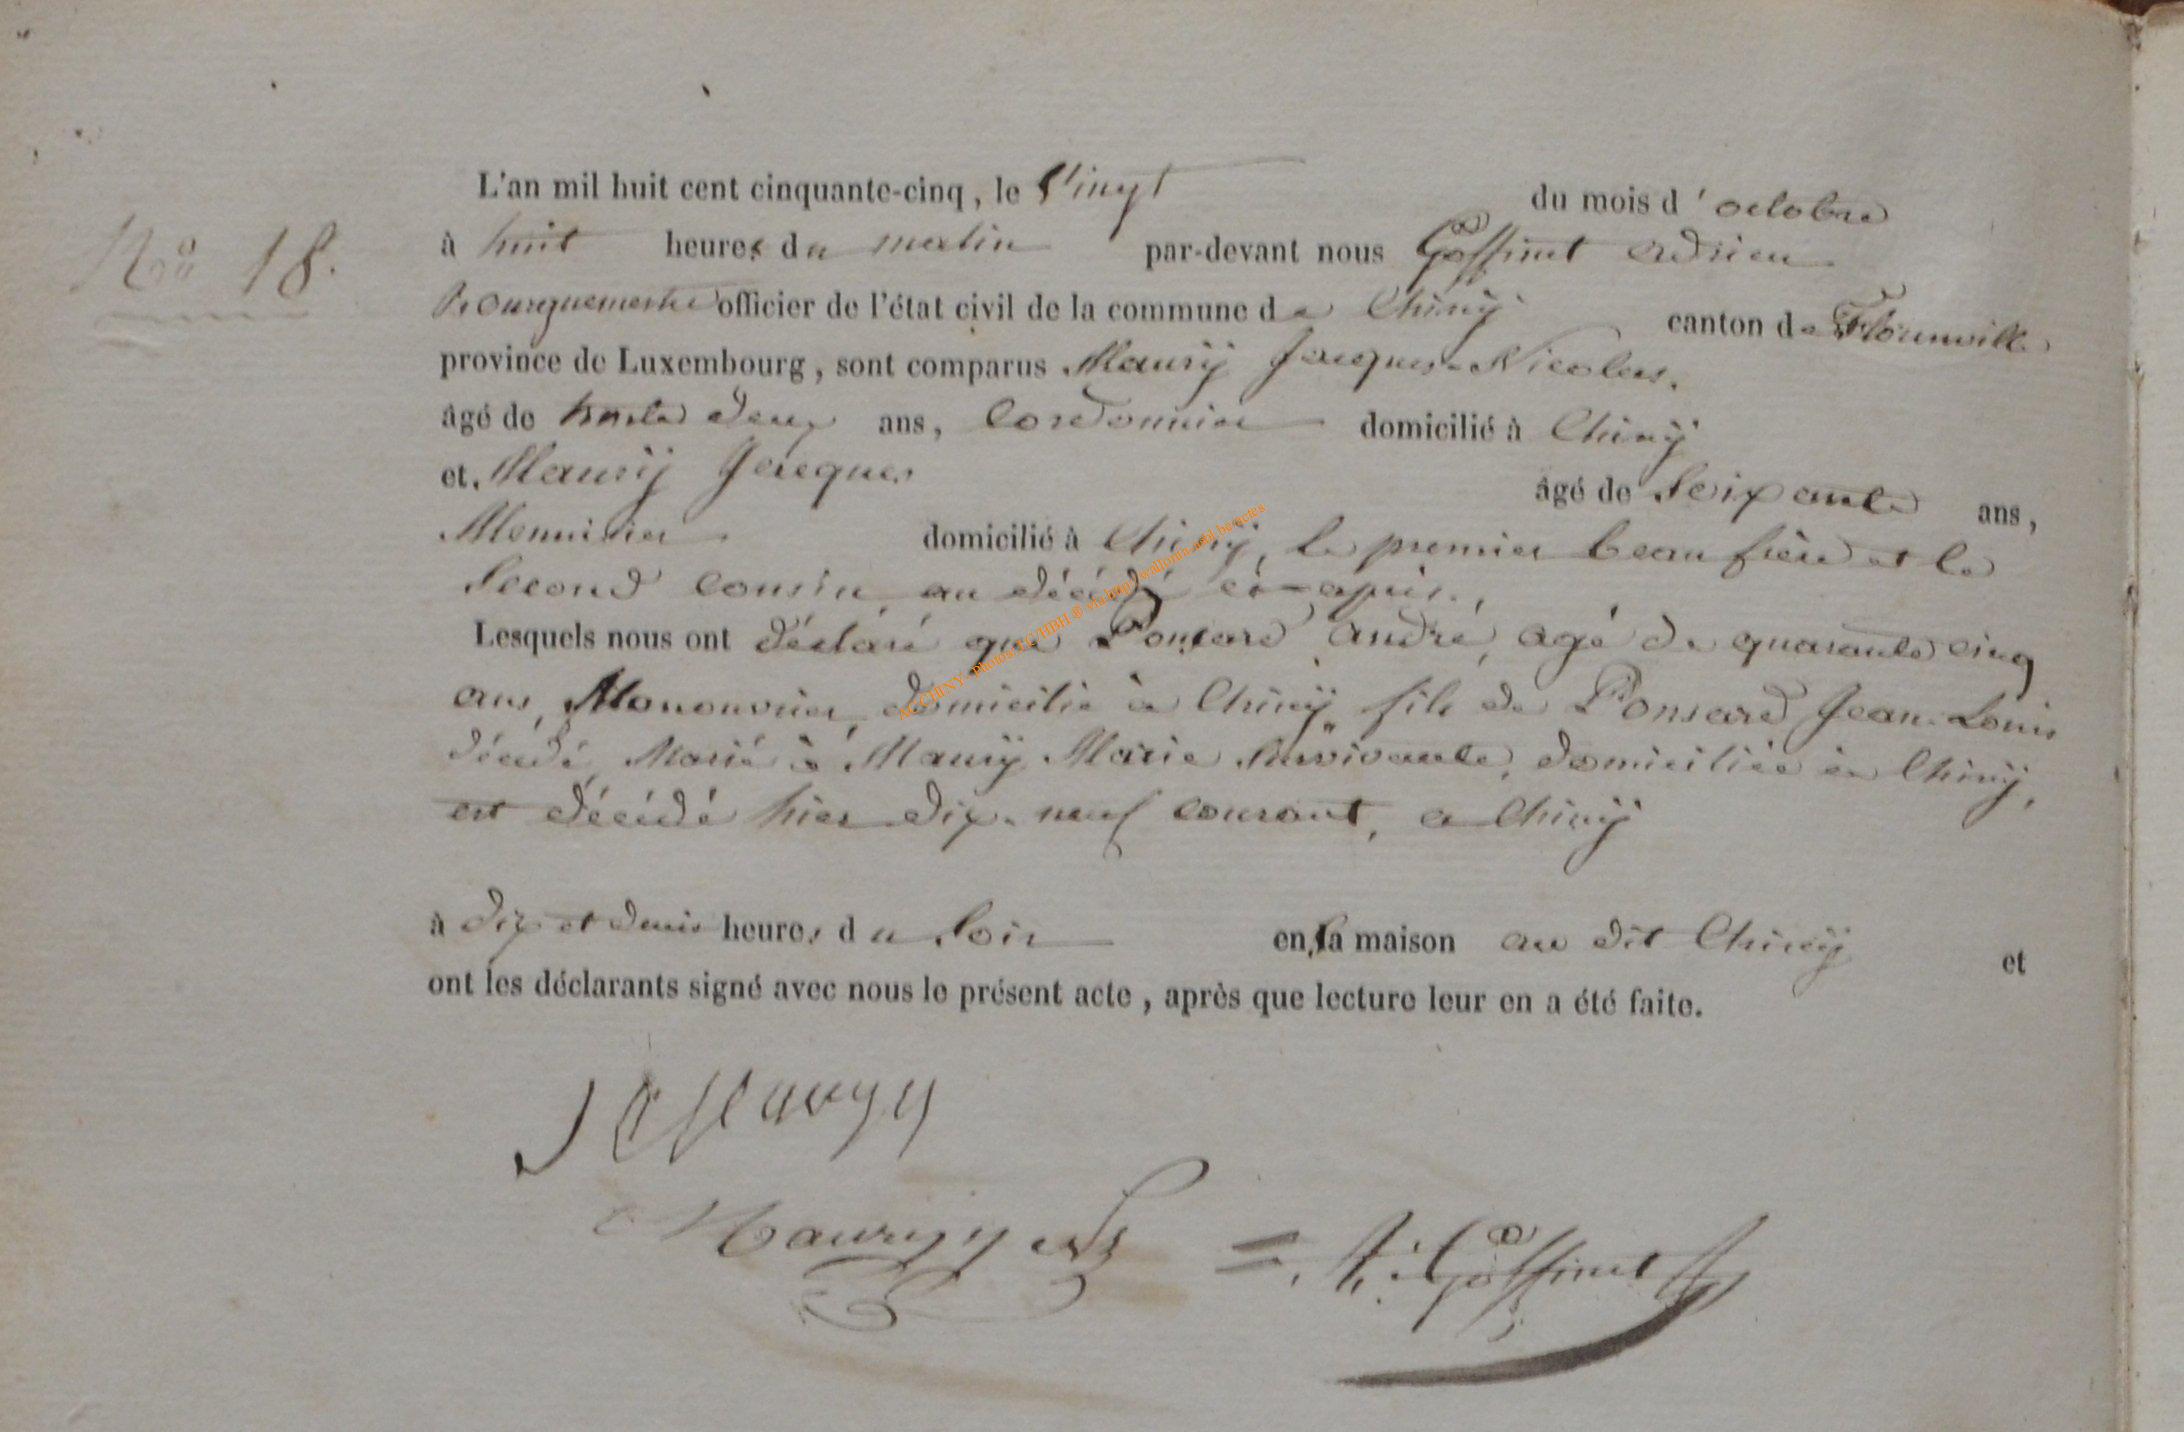 L'an mil huit cent cinquante-cinq, le Vingt du mois d'octobre
No 18.
à huit heures du matin par-devant nous Goffinet adrien
Bourguemestre officier de l'état civil de la commune de Chinÿ canton de Florenville
province de Luxembourg, sont comparus Maurÿ Jacques-Nicolas.
âgé de trente deux ans, Cordonnier domicilié à Chinÿ
et, Maurÿ Jacques âgé de Soixante ans,
Menuisier domicilié à Chinÿ, le premier beau frère et le
Second cousin, au décédé ci-après.,
Lesquels nous ont déclaré que Ponsard andré, agé de quarante cinq
ans, Manouvrier, domicilié à Chinÿ, fils de Ponsard Jean-Louis
décédé, Marié à Maurÿ Marie Survivante, domiciliée à Chinÿ,
est décédé hier dix-neuf courant, a Chinÿ
à dix et demie heures du Soir en sa maison au dit Chinÿ et
ont les déclarants signé avec nous le présent acte, après que lecture leur en a été faite.
Maury
A. Goffinet
AC CHINY - photos TC/HBH ©